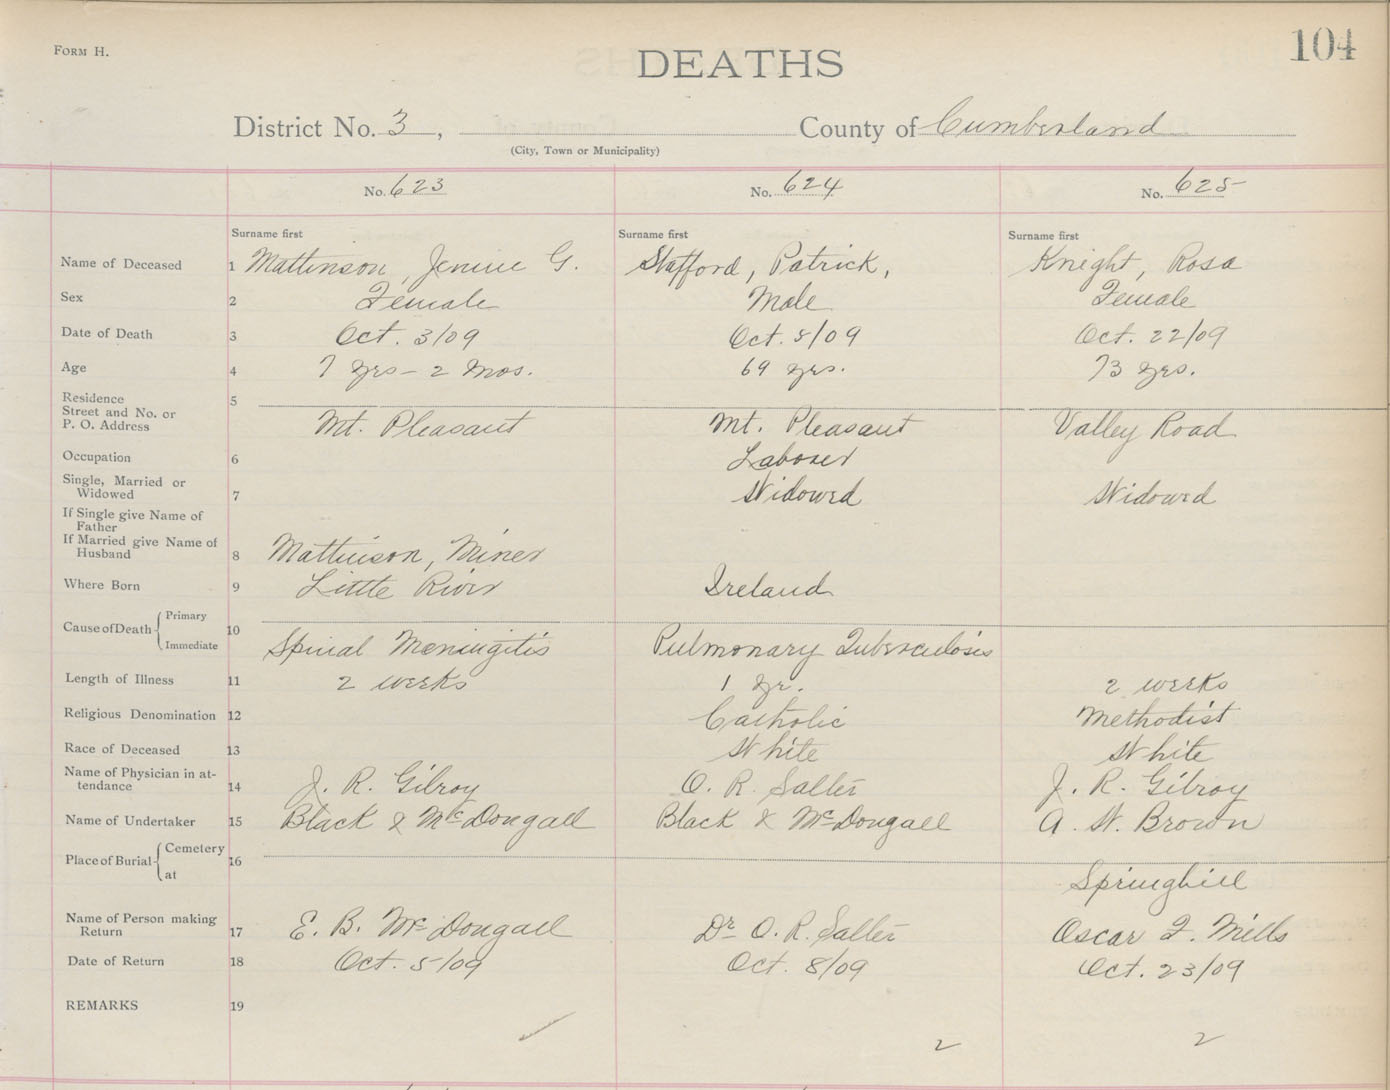 FORM H.
DEATHS
104
District No. 3, County of Cumberland
(City, Town or Municipality)
No. 623 No. 624 No. 625
Surname first Surname first Surname first
Name of Deceased 1 Mattinson, Jennie G. Stafford, Patrick, Knight, Rosa
Sex 2 Female Male Female
Date of Death 3 Oct. 3/09 Oct. 5/09 Oct. 22/09
Age 4 7 yrs - 2 mos. 69 yrs. 73 yrs.
Residence 5
Street and No. or
P. O. Address Mt. Pleasant Mt. Pleasant Valley Road
Occupation 6 Laborer
Single, Married or
Widowed 7 Widowed Widowed
If Single give Name of
Father
If Married give Name of
Husband 8 Mattinson, Miner
Where Born 9 Little River Ireland
Cause of Death 10 Primary
Immediate Spinal Meningitis Pulmonary Tuberculosis
Length of Illness 11 2 weeks 1 yr. 2 weeks
Religious Denomination 12 Catholic Methodist
Race of Deceased 13 White White
Name of Physician in at-
tendance 14 J. R. Gilroy O. R. Salter J. R. Gilroy
Name of Undertaker 15 Black & McDougall Black & McDougall A. W. Brown
Place of Burial 16 Cemetery
at Springhill
Name of Person making
Return 17 E. B. McDougall Dr O. R. Salter Oscar F. Mills
Date of Return 18 Oct. 5/09 Oct. 8/09 Oct. 23/09
REMARKS 19
2 2